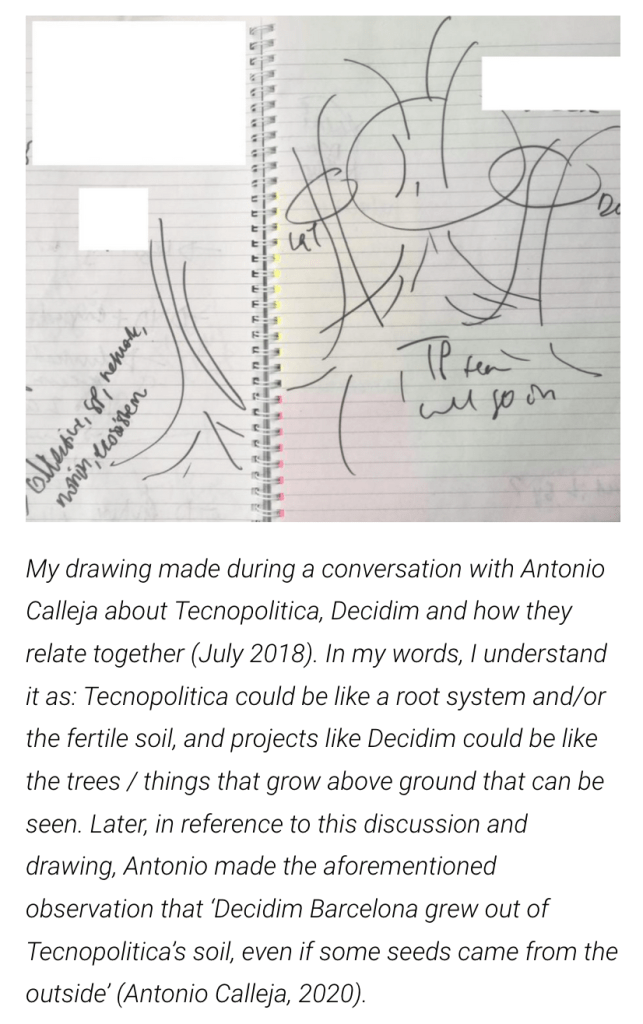 collective, SP, network,
ecosistem
TP
will go on
My drawing made during a conversation with Antonio
Calleja about Tecnopolitica, Decidim and how they
relate together (July 2018). In my words, I understand
it as: Tecnopolitica could be like a root system and/or
the fertile soil, and projects like Decidim could be like
the trees / things that grow above ground that can be
seen. Later, in reference to this discussion and
drawing, Antonio made the aforementioned
observation that ‘Decidim Barcelona grew out of
Tecnopolitica’s soil, even if some seeds came from the
outside’ (Antonio Calleja, 2020).